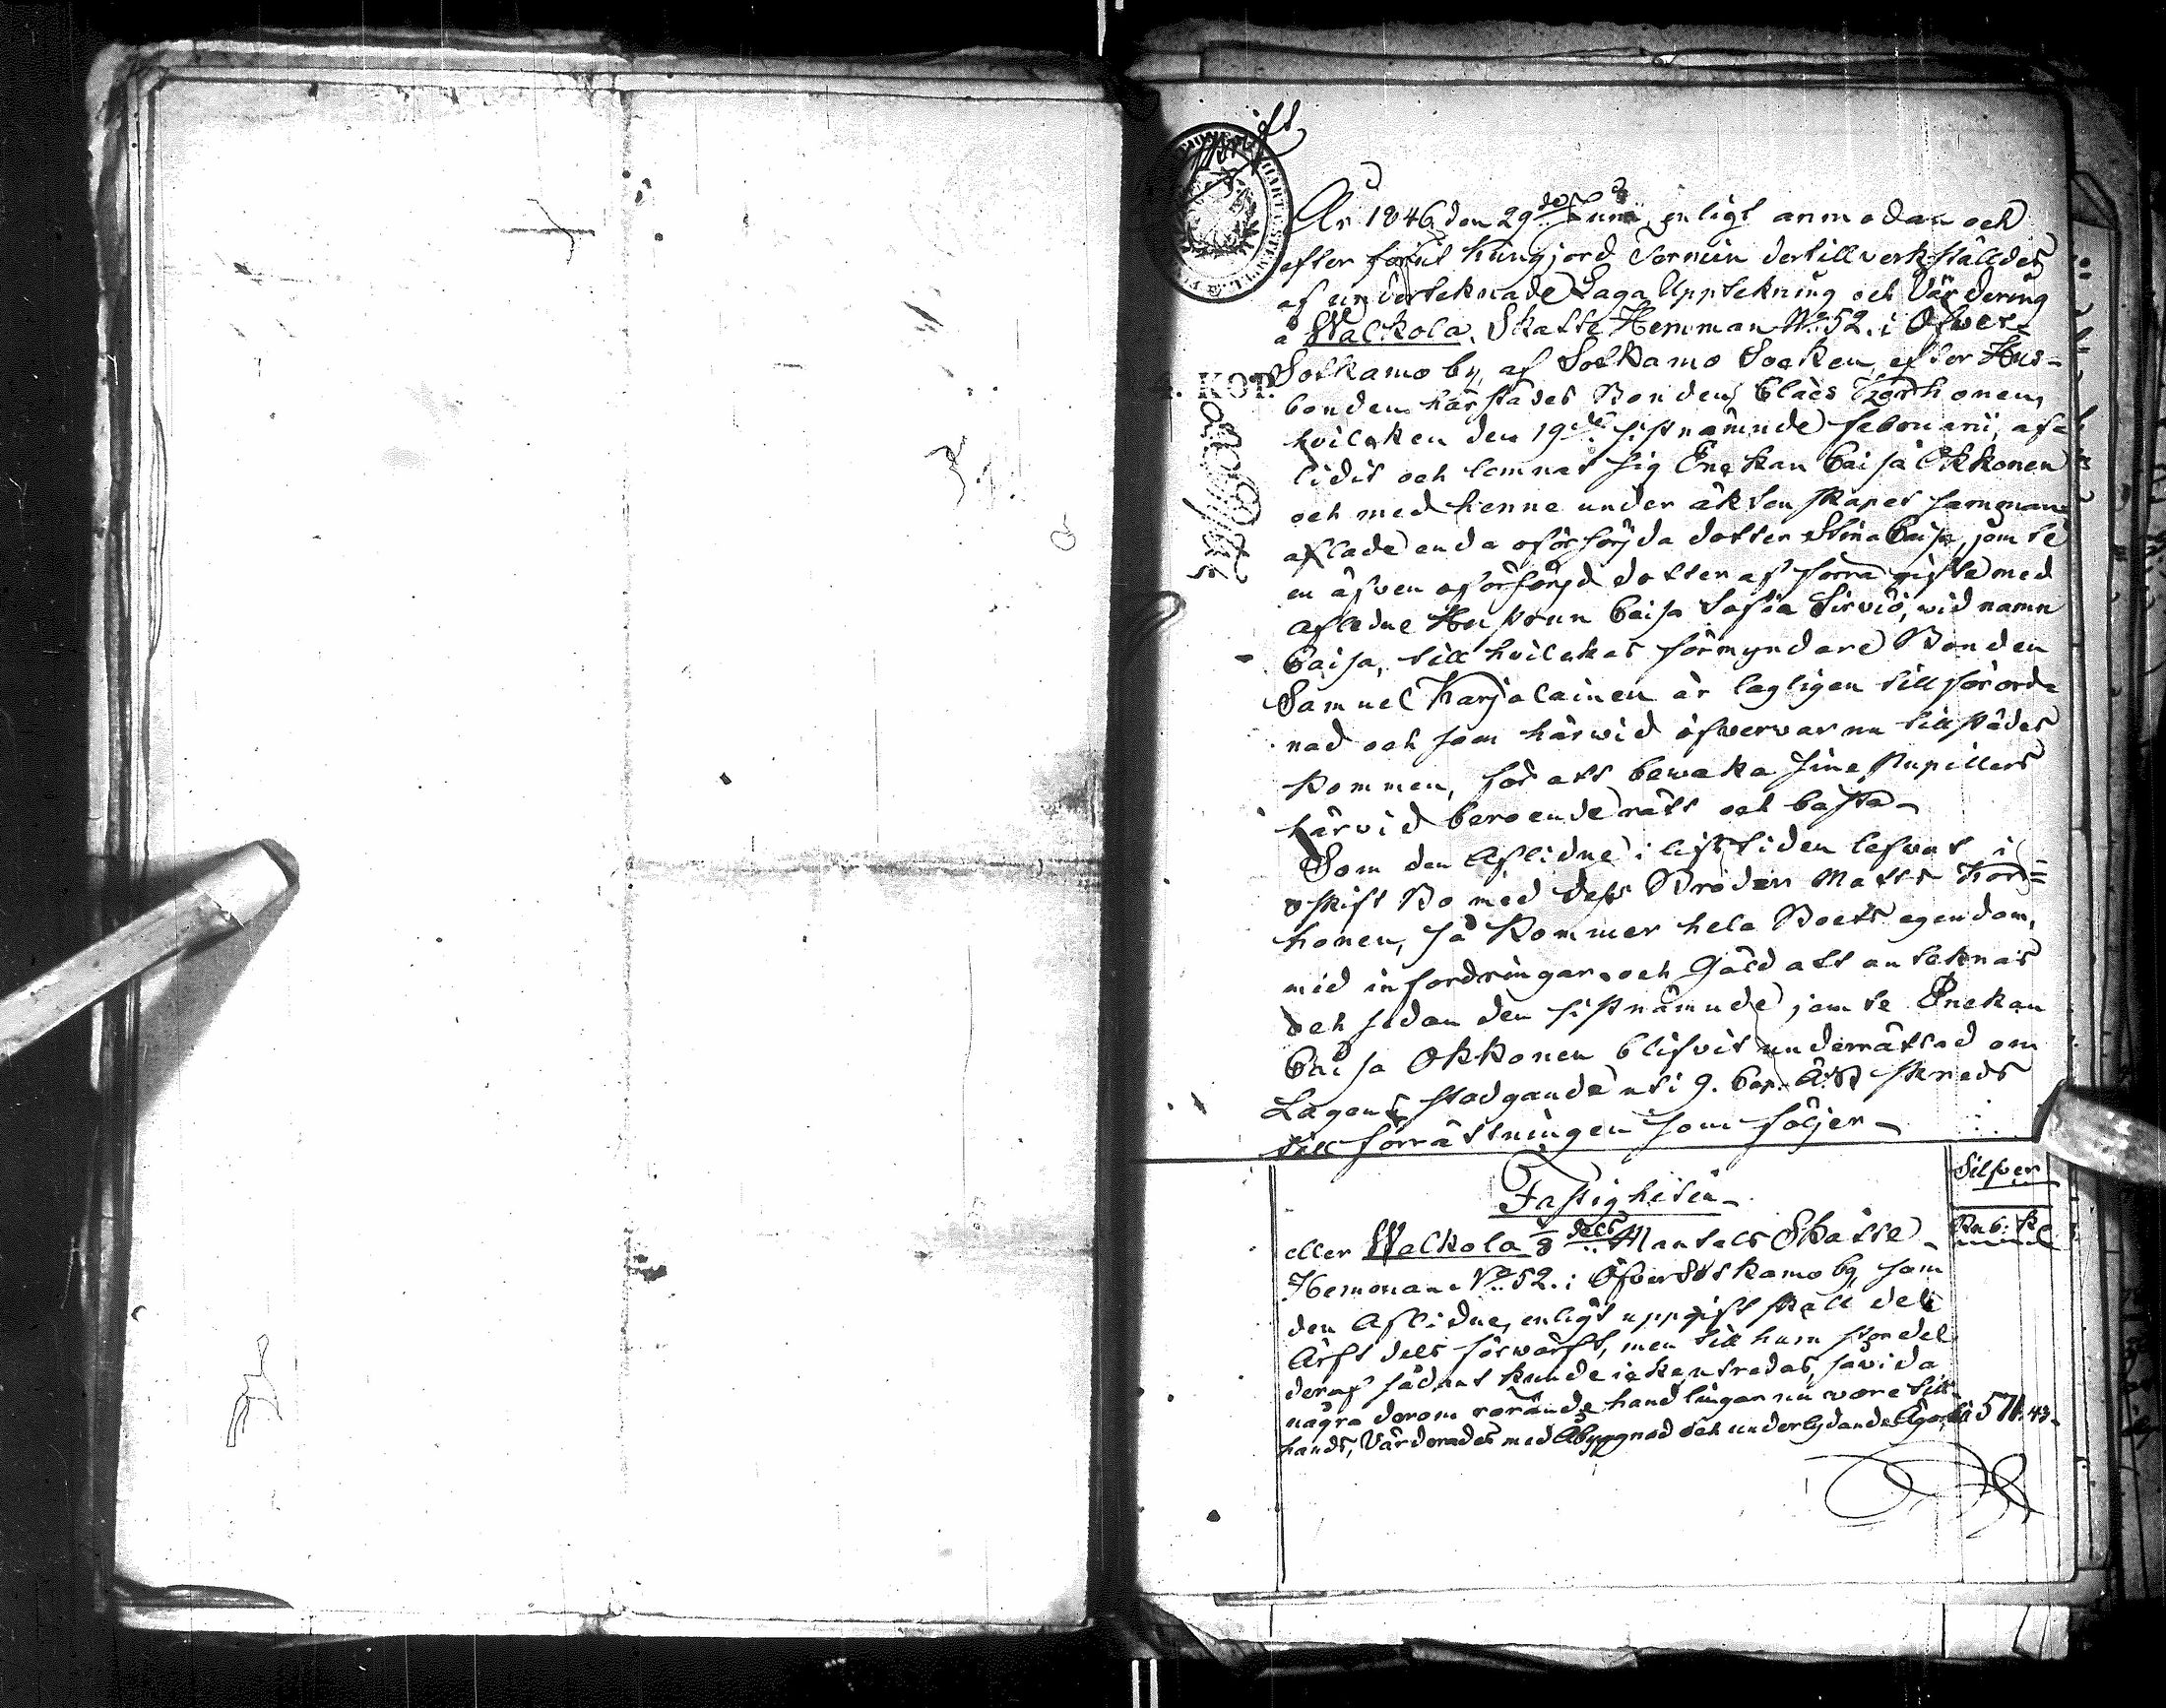 År 1846 den 29de Juni, enligt anmodan och
efter förut kungjord Termin dertill verkställdes
af undertecknade Laga Upptekning och Värdering
å Walkola Skatte Hemman No 52. i Öfver-
Sotkamo by, af Sotkamo Socken, efter Hus-
bonden härstädes Bonden Claës Korhonen,
4. KOP.
hvilcken den 19de sistnämnde Februarii, af-
lidit och lemnat sig Enckan Caisa Okkonen
och med henne under äktenskapet samman-
aflade enda oförsörjda dotter Stina Caisa, jemte
en äfven oförsörjd dotter af förra giftemed
Aflidne Hustrun Caisa Sofia Sirviö, wid namn
Caisa, till hvilckas förmyndare Bonden
Samuel Karjalainen är lagligen tillförord-
nad och som härwid öfvervar nu tillstädes
kommen, för att bewaka sine Pupillers
härvid beroende rätt och bästa
Som den Aflidne i lifstiden lefvat i
oskift Bo med dess Broder Matts Kor-
honen, så kommer hela Boets egendom,
med infordringar och Gäld att anteknas
och sedan den sistnämnde jemte Enckan
Caisa Okkonen blifvit underrättad om
Lagens stadgande uti 9. Cap. Ä.B. skreds
till förrättningen som följer
Fastigheten
Silfver
Rub: K.
eller Walkola dels Mantals Skatte
Hemman No 52. i Öfver Sotkamo by, som
den Aflidne, enligt uppgift skall dels
Ärft dels förwärft, men till hum stor del
deraf sådant kunde icke utredas, såvida
några derom rörande handlingar nu wore till-
hands, Värderades med Åbyggnad och underlydande Ägor, till 571. 43.